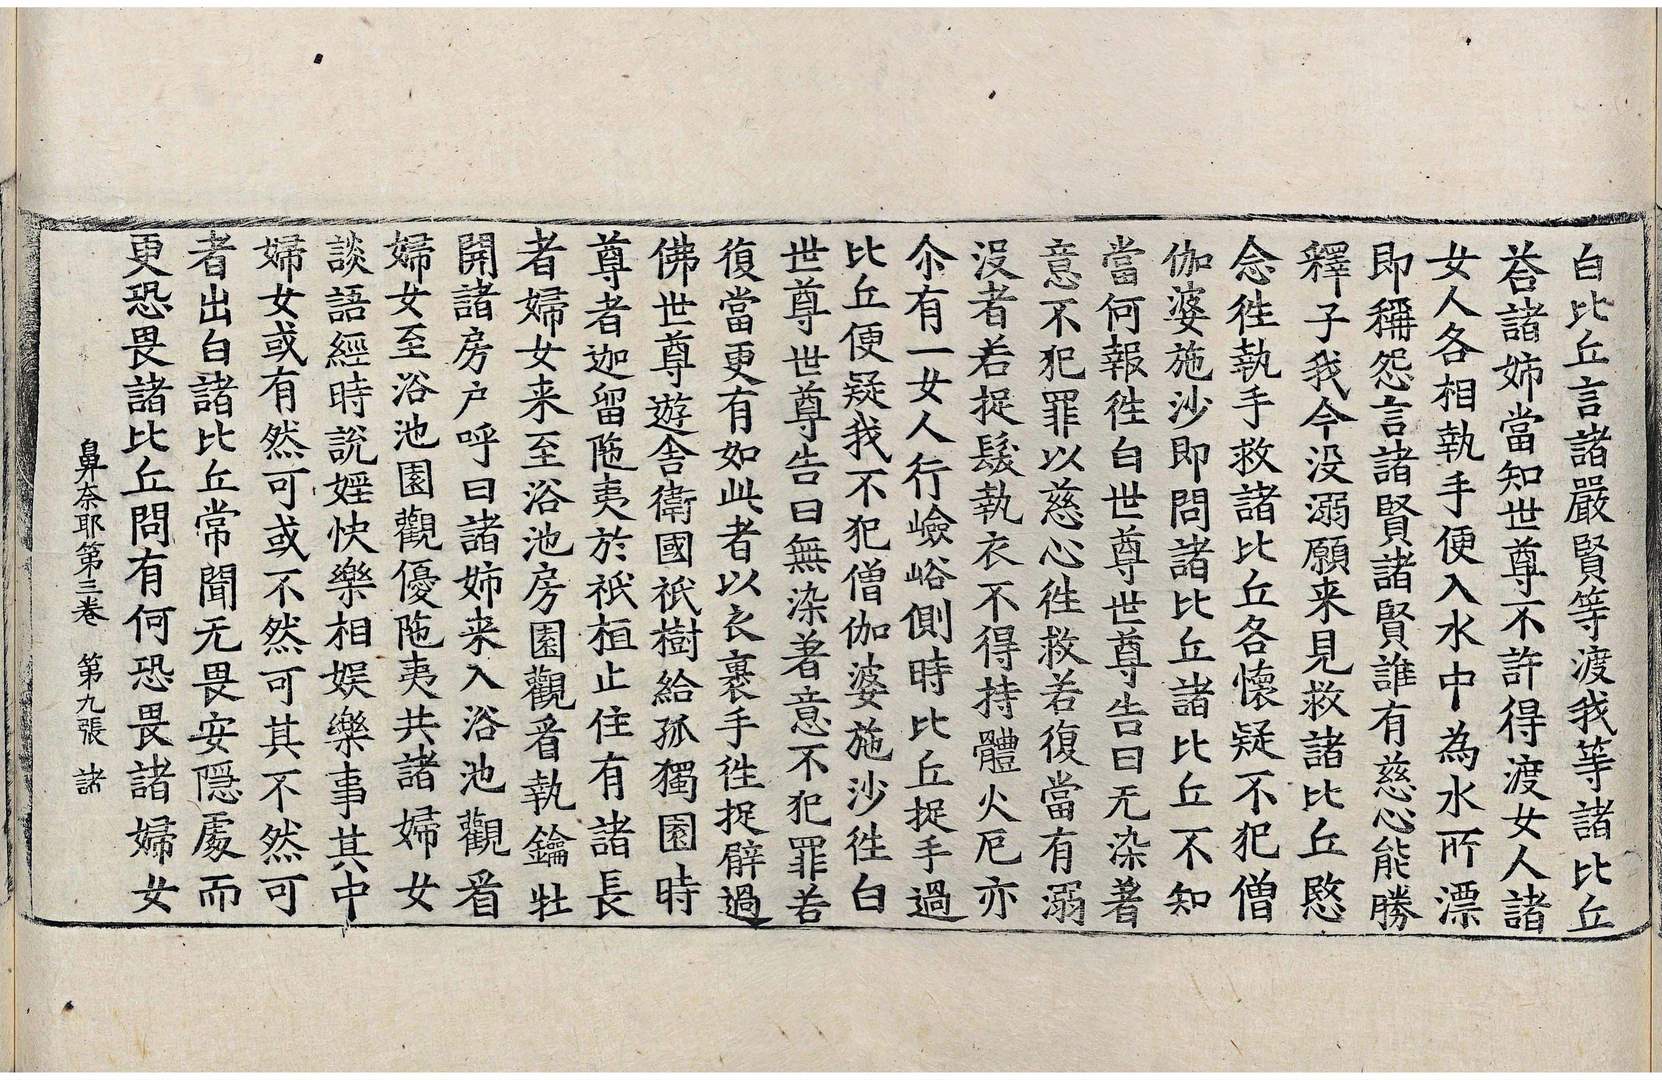 白比丘言諸嚴賢等渡我等諸比丘
荅諸姊當知世尊不許得渡女人諸
女人各相執手便入水中為水所漂
即稱怨言諸賢諸賢誰有慈心能勝
釋子我今没溺願来見救諸比丘愍
念徃執手救諸比丘各懷疑不犯僧
伽婆施沙即問諸比丘諸比丘不知
當何報徃白世尊世尊告曰无染著
意不犯罪以慈心徃救若復當有溺
没者若捉髮執衣不得持體火厄亦
尒有一女人行嶮峪側時比丘捉手過
比丘便疑我不犯僧伽婆施沙徃白
世尊世尊告曰無染著意不犯罪若
復當更有如此者以衣裹手徃捉臂過
佛世尊遊舍衛國祇樹給孤獨園時
尊者迦留陁夷於祇桓止住有諸長
者婦女来至浴池房園觀看執鑰牡
開諸房户呼曰諸姊来入浴池觀看
婦女至浴池園觀優陁夷共諸婦女
談語經時說婬怏樂相娱樂事其中
婦女或有然可或不然可其不然可
者出白諸比丘常聞无畏安隱處而
更恐畏諸比丘問有何恐畏諸婦女
鼻奈耶第三卷　第九張　諸